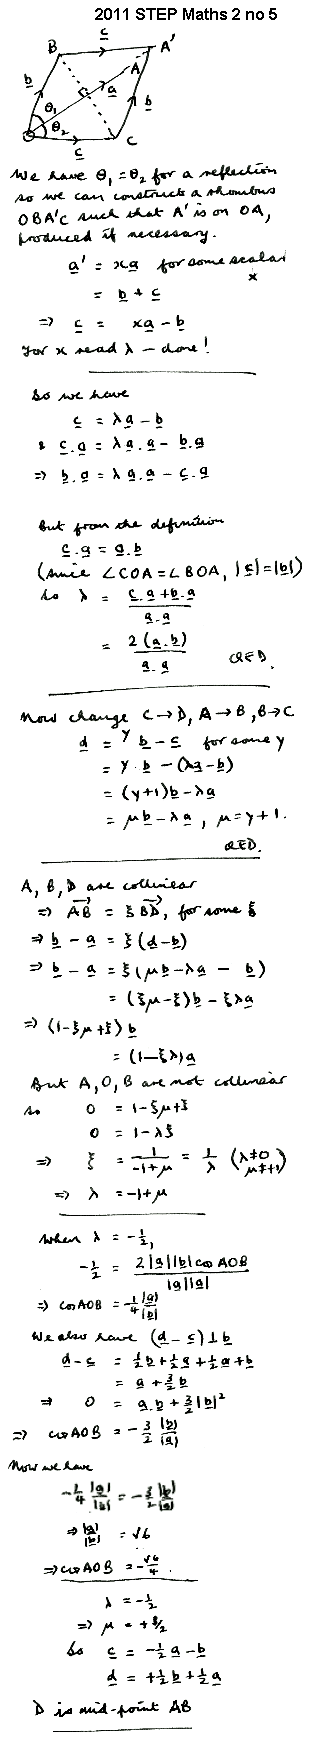 2011 STEP Maths 2 no 5
c
B
A'
A
b
a
b
θ₁
θ₂
O
C
c
We have θ₁ = θ₂ for a reflection
so we can construct a rhombus
OBA'C such that A' is on OA,
produced if necessary.
a' = xa for some scalar x
= b + c
⇒ c = xa - b
For x read λ – done!
So we have
c = λa - b
& c.a = λa.a - b.a
⇒ b.a = λa.a - c.a
But from the definition
c.a = a.b
(since ∠COA = ∠BOA, |c| = |b|)
So λ = (c.a + b.a) / (a.a)
= 2(a.b) / (a.a) QED.
Now change C→D, A→B, B→C
d = y b - c for some y
= y.b - (λa - b)
= (y+1)b - λa
= μb - λa, μ = y+1.
QED.
A, B, D are collinear
⇒ AB = ξ BD, for some ξ
⇒ b - a = ξ(d - b)
⇒ b - a = ξ(μb - λa - b)
= (ξμ - ξ)b - ξλa
⇒ (1 - ξμ + ξ) b
= (1 - ξλ)a
But A, O, B are not collinear
so 0 = 1 - ξμ + ξ
0 = 1 - λξ
⇒ ξ = 1/(-1+μ) = 1/λ (λ≠0 μ≠1)
⇒ λ = -1+μ
When λ = -½,
-½ = 2|a||b|cos AOB / |a||a|
⇒ cos AOB = -¼ |a|/|b|
We also have (d - c) ⊥ b
d - c = ½b + ½a + ½a + b
= a + 3/2 b
⇒ 0 = a.b + 3/2 |b|²
⇒ cos AOB = - 3/2 |b|/|a|
Now we have
-¼ |a|/|b| = - 3/2 |b|/|a|
⇒ |a|/|b| = √6
⇒ cos AOB = -√6/4.
λ = -½
⇒ μ = +½
So c = -½ a - b
d = +½ b + ½ a
D is mid-point AB